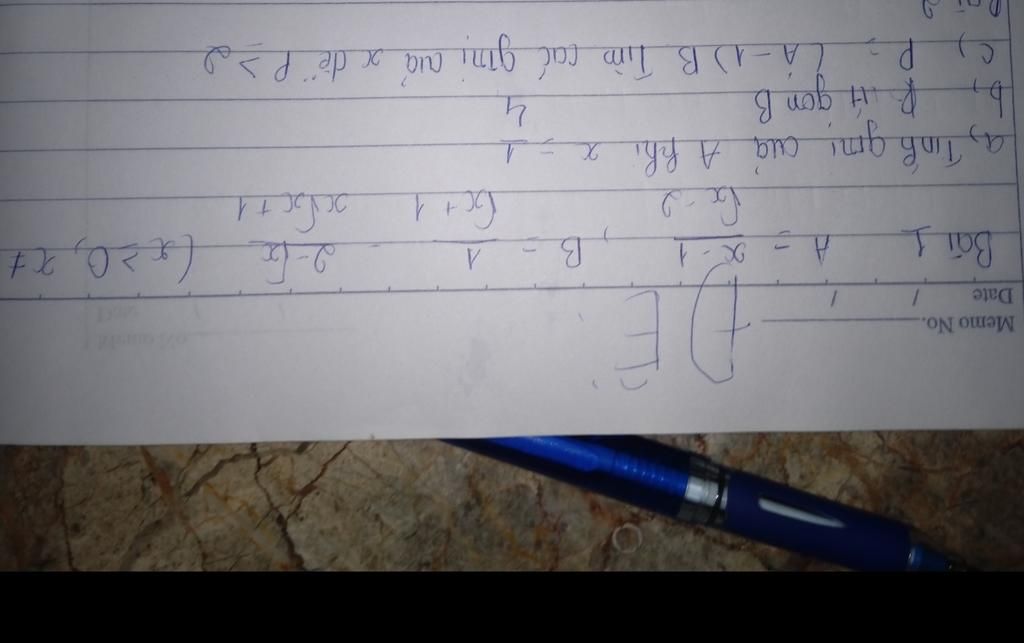 Memo No.
Date / /
ĐỀ
Bài 1 A = \frac{x-1}{\sqrt{x}-2}, B = \frac{1}{\sqrt{x}+1} - \frac{2-\sqrt{x}}{x\sqrt{x}+1} (x ≥ 0, x ≠
a, Tính gtrị của A khi x = \frac{1}{4}
b, Rút gọn B
c, P = (A-1)B Tìm các gtrị của x để P ≥ 2
Bài 2